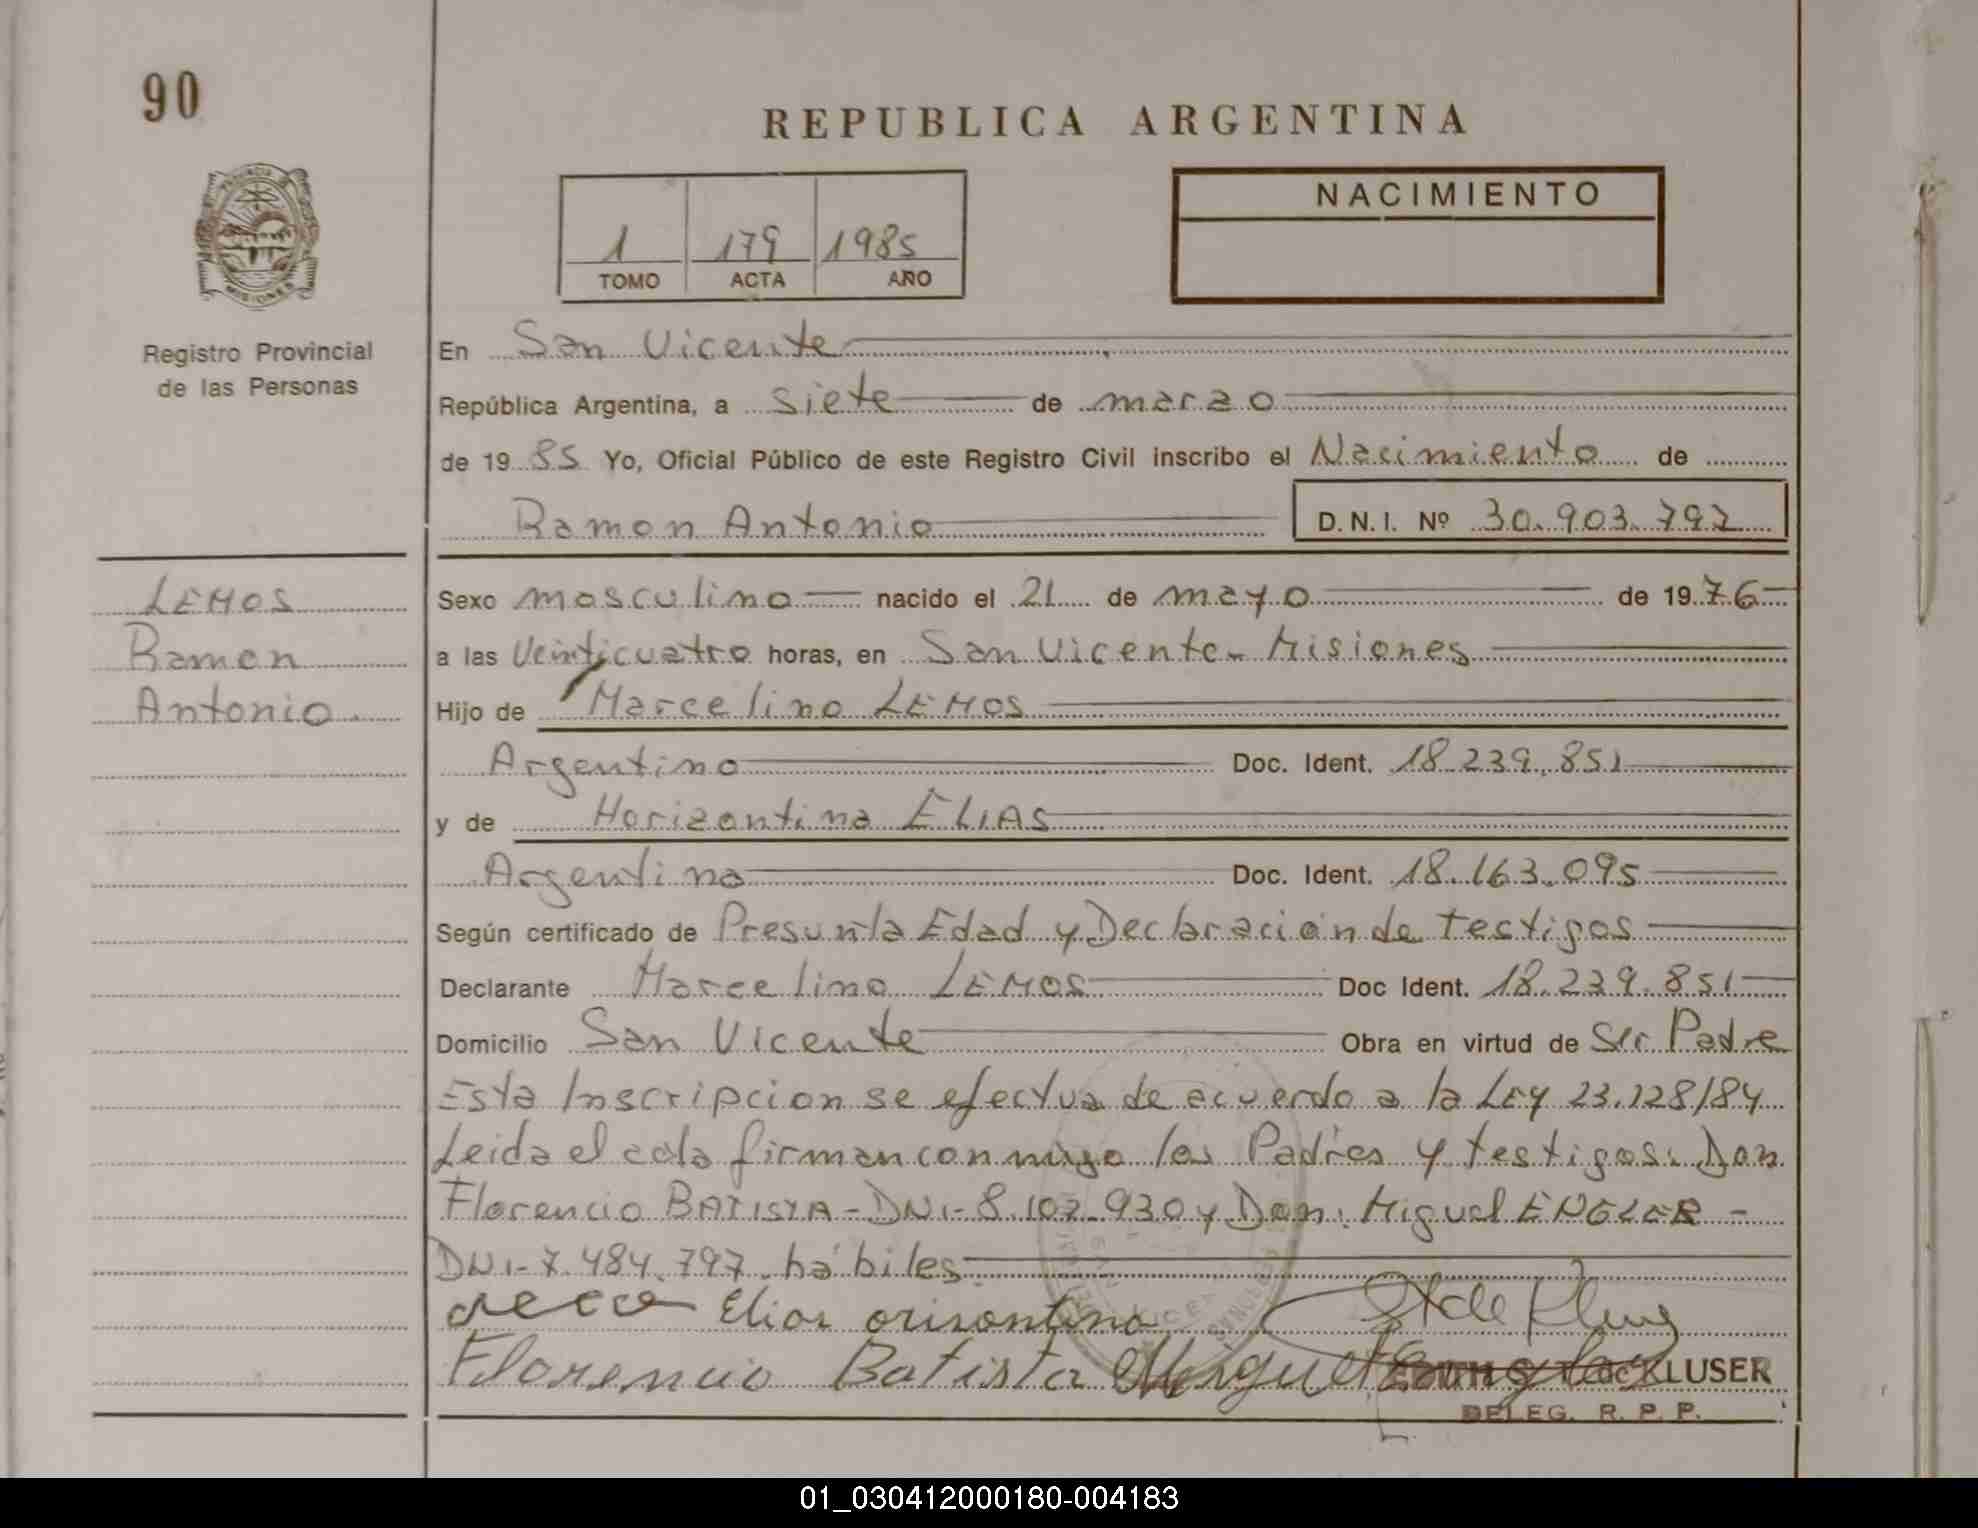 90
REPUBLICA ARGENTINA
NACIMIENTO
1 179 1985
TOMO ACTA AÑO
PROVINCIA DE
MISIONES
Registro Provincial
de las Personas
En San Vicente
República Argentina, a siete de marzo
de 1985 Yo, Oficial Público de este Registro Civil inscribo el Nacimiento de
Ramon Antonio D.N.I. Nº 30.903.792
LEMOS
Ramon
Antonio.
Sexo masculino nacido el 21 de mayo de 1976
a las Veinticuatro horas, en San Vicente - Misiones
Hijo de Marcelino LEMOS
Argentino Doc. Ident. 18.239.851
y de Horizontina ELIAS
Argentina Doc. Ident. 18.163.095
Según certificado de Presunta Edad y Declaración de testigos
Declarante Marcelino LEMOS Doc Ident. 18.239.851
Domicilio San Vicente Obra en virtud de Ser Padre
Esta Inscripcion se efectua de acuerdo a la LEY 23.128/84
Leida el acta firman conmigo los Padres y testigos: Don
Florencio BATISTA - DNI - 8.102.930 y Don: Miguel ENGLER -
DNI - 7.484.797 hábiles
Elias orisontina
Florencio Batista Miguel Engler
KLUSER
DELEG. R. P. P.
01_030412000180-004183